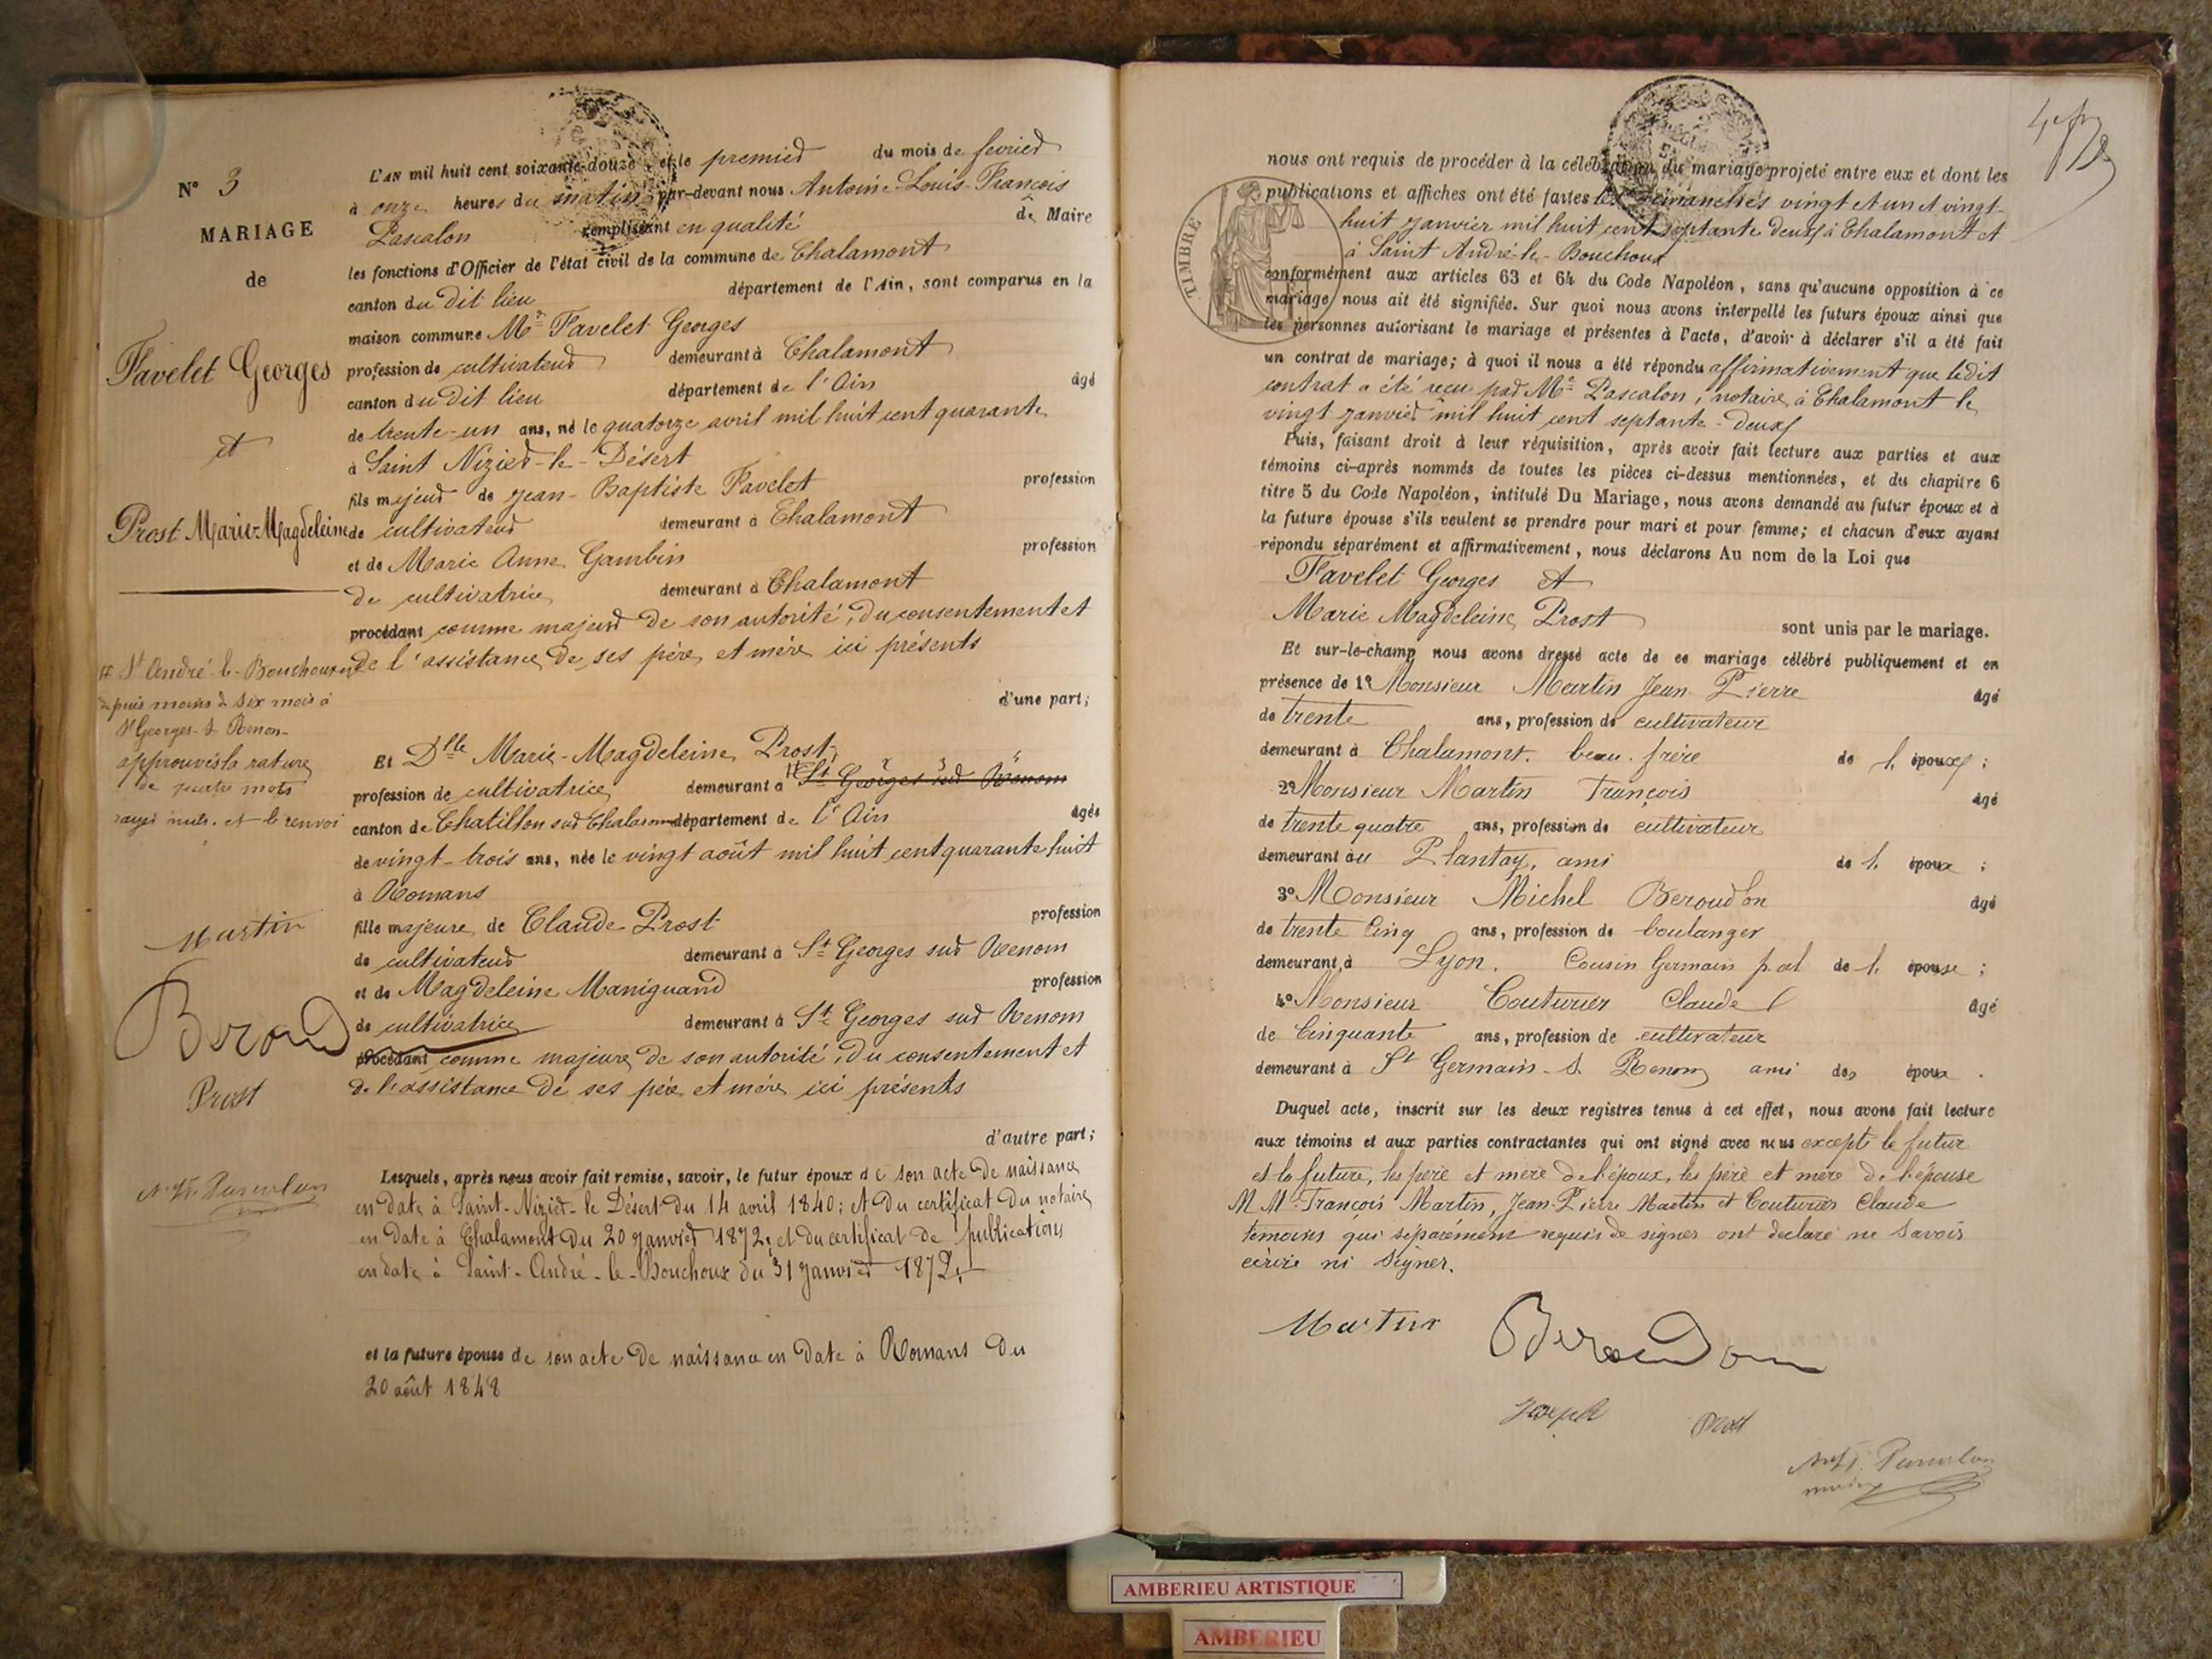 N° 3
MARIAGE
de
Favelet Georges
et
Prost Marie-Magdeleine
St André-le-Bouchoux et
depuis moins de six mois à
St Georges-s-Renon-
approuvés la rature
de quatre mots
rayés nuls. et le renvoi
Martin
Beroud
Prost
L'AN mil huit cent soixante-douze, et le premier du mois de février
à onze heures du matin par-devant nous Antoine-Louis-François
Pascalon remplissant en qualité de Maire
les fonctions d'Officier de l'état civil de la commune de Chalamont
canton du dit lieu département de l'Ain, sont comparus en la
maison commune Mr Favelet Georges
profession de cultivateur demeurant à Chalamont
canton du dit lieu département de l'Ain âgé
de trente-un ans, né le quatorze avril mil huit cent quarante
à Saint Nizier-le-Désert
fils majeur de Jean-Baptiste Favelet profession
de cultivateur demeurant à Chalamont
et de Marie Anne Gambin profession
de cultivatrice demeurant à Chalamont
procédant comme majeur de son autorité, du consentement et
de l'assistance de ses père et mère ici présents
d'une part;
Et Dlle Marie-Magdeleine Prost
profession de cultivatrice demeurant à St Georges sur Renom
canton de Chatillon sur Chalaronne département de l'Ain âgée
de vingt-trois ans, née le vingt août mil huit cent quarante huit
à Romans
fille majeure de Claude Prost profession
de cultivateur demeurant à St Georges sur Renom
et de Magdeleine Maniguand profession
de cultivatrice demeurant à St Georges sur Renom
procédant comme majeure de son autorité, du consentement et
de l'assistance de ses père et mère ici présents
d'autre part;
Lesquels, après nous avoir fait remise, savoir, le futur époux de son acte de naissance
en date à Saint-Nizier-le Désert du 14 avril 1840; et du certificat du notaire
en date à Chalamont du 20 janvier 1872, et du certificat de publications
en date à Saint-André-le-Bouchoux du 31 janvier 1872,
et la future épouse de son acte de naissance en date à Romans du
20 août 1848
TIMBRE
nous ont requis de procéder à la célébration du mariage projeté entre eux et dont les
publications et affiches ont été faites les dimanches vingt et un et vingt-
huit janvier mil huit cent septante deux à Chalamont et
à Saint André-le-Bouchoux
conformément aux articles 63 et 64 du Code Napoléon, sans qu'aucune opposition à ce
mariage nous ait été signifiée. Sur quoi nous avons interpellé les futurs époux ainsi que
les personnes autorisant le mariage et présentes à l'acte, d'avoir à déclarer s'il a été fait
un contrat de mariage; à quoi il nous a été répondu affirmativement que ledit
contrat a été reçu par Me Pascalon, notaire à Chalamont le
vingt janvier mil huit cent septante-deux
Puis, faisant droit à leur réquisition, après avoir fait lecture aux parties et aux
témoins ci-après nommés de toutes les pièces ci-dessus mentionnées, et du chapitre 6
titre 5 du Code Napoléon, intitulé Du Mariage, nous avons demandé au futur époux et à
la future épouse s'ils veulent se prendre pour mari et pour femme; et chacun d'eux ayant
répondu séparément et affirmativement, nous déclarons Au nom de la Loi que
Favelet Georges et
Marie Magdeleine Prost sont unis par le mariage.
Et sur-le-champ nous avons dressé acte de ce mariage célébré publiquement et en
présence de 1° Monsieur Martin Jean Pierre âgé
de trente ans, profession de cultivateur
demeurant à Chalamont. beau-frère de l. époux;
2° Monsieur Martin François âgé
de trente quatre ans, profession de cultivateur
demeurant au Plantay, ami de l. époux;
3° Monsieur Michel Beroudon âgé
de trente Cinq ans, profession de boulanger
demeurant à Lyon. Cousin Germain p.al de l. épouse;
4° Monsieur Couturier Claude âgé
de Cinquante ans, profession de cultivateur
demeurant à St Germain-s. Renom ami des époux.
Duquel acte, inscrit sur les deux registres tenus à cet effet, nous avons fait lecture
aux témoins et aux parties contractantes qui ont signé avec nous excepté le futur
et la future, les père et mère de l'époux, les père et mère de l'épouse
M M. François Martin, Jean-Pierre Martin et Couturier Claude
témoins qui séparément requis de signer ont déclaré ne savoir
écrire ni signer.
Martin
Beroudon
Joseph Prost
maire
AMBERIEU ARTISTIQUE
AMBERIEU